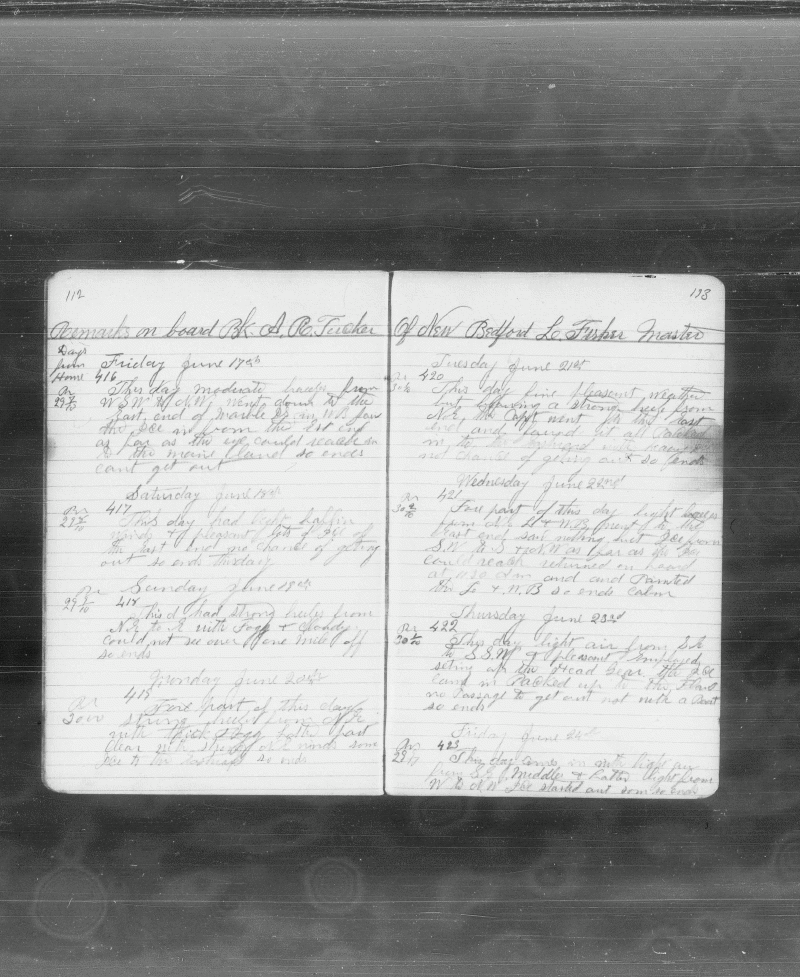 112
Remarks on board Bk. A. R. Tucker
Days
from
Home
Friday June 17th
416
Br
This day moderate breeze from
29 7/10
W.S.W. to N.W. went down to the
East end of Marble Is in W.B. saw
the Ice in from the Est end
as far as the eye could reach in
to the main land so ends
cant get out
Saturday June 18th
417
Br
29 7/10
This day had baffling
winds & pleasant lots of Ice of
the East end no chance of geting
out so ends
Sunday June 19th
Br
418
This d had strong breeze from
N.E. with Fogg & Cloudy
Could not see over one mile off
so ends
Monday June 20th
415
Br
30 00
Fore part of this day
strong breeze from N.E.
with thick Fogg latter part
Clear with strong N.E. winds som
Ice to the so ends
113
Of New Bedford L. Fisher Master
Tuesday June 21st
Br
420
This day fine pleasant weather
but blowing a strong breeze from
N.E. the Capt went to the East
end and found it all Packed
in
not chance of geting out so ends
Wednesday June 22nd
Br
421
Fore part of this day light breeze
from S.E. went to the
East end saw nothing but Ice from
S.W. to S. & N.W. as far as the Eye
Could reach returned on board
at and and Painted
the & W.B. so ends calm
Thursday June 23rd
Br
422
This day light air from S.E.
to S.S.W. & pleasant Employed
seting up the Head Gear the Ice
Came in Packed up to the
no Passage to get out not with a Boat
so ends
Friday June 24th
Br
423
This day comes in with light air
from S.E. Middle & Latter light from
W. to N.W. Ice started out som so ends